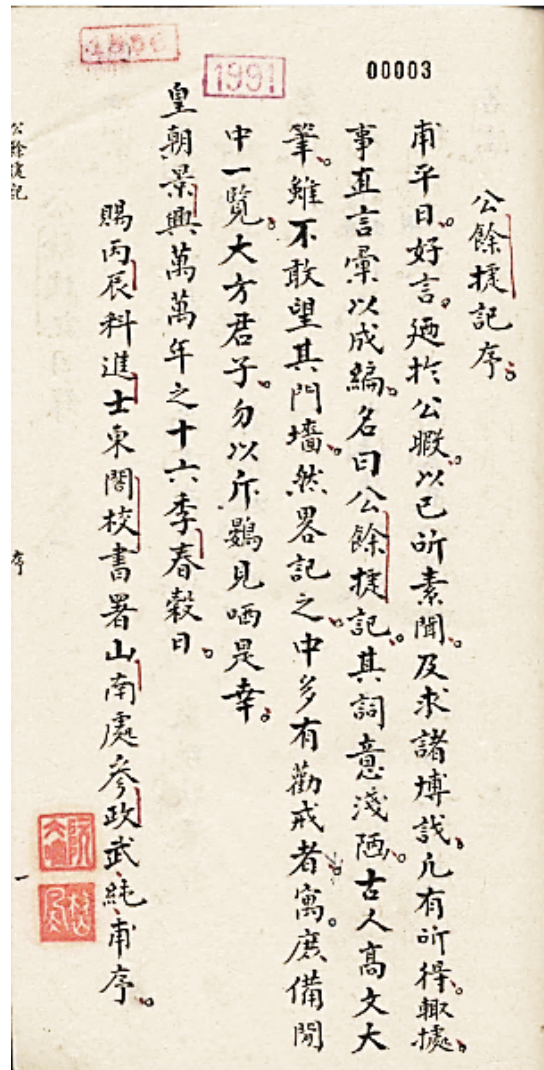 1991
00003
公餘捷記序。
甫平日。好言。廼扵公暇。以已所素聞。及求諸博哉。凢有所得。輙據。
事直言彙以成編。名曰公餘捷記。其詞意淺陋。古人高文大
筆。雖不敢望其門墻。然畧記之。中多有勸戒者寓。庶備閒
中一覽。大方君子。勿以斥鷃見哂是幸。
皇朝景興萬萬年之十六季春穀日。
賜丙辰科進士東閣校書署山南處參政武純甫序。
公餘捷記
序
一